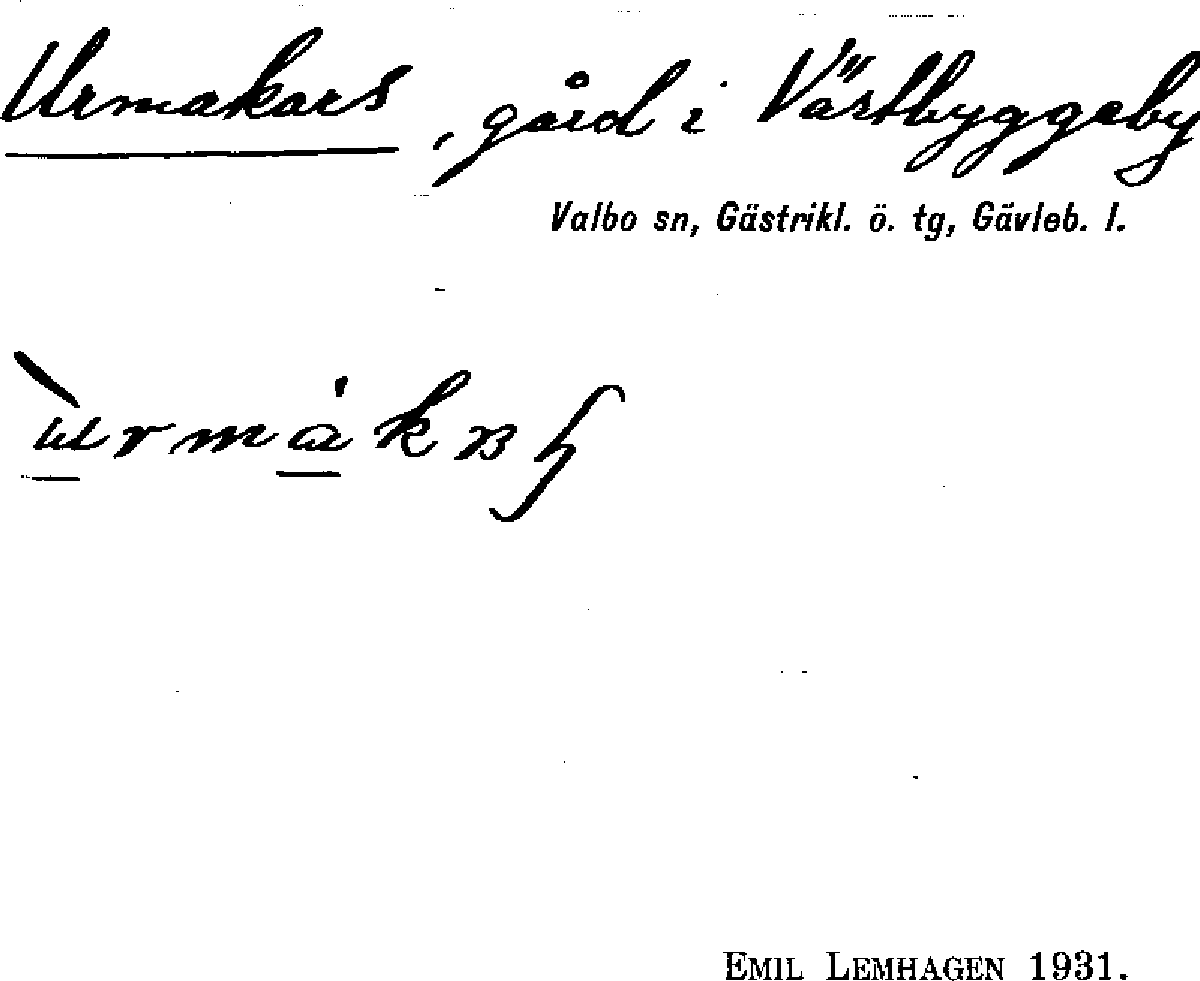 Urmakars, gård i Västbyggeby
Valbo sn, Gästrikl. ö. tg, Gävleb. l.
EMIL LEMHAGEN 1931.